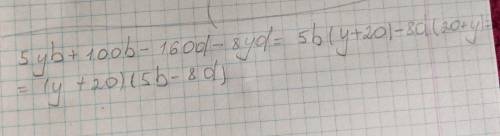 5yb+100b-160d-8yd=5b(y+20)-8d(20+y)=
=(y+20)(5b-8d)